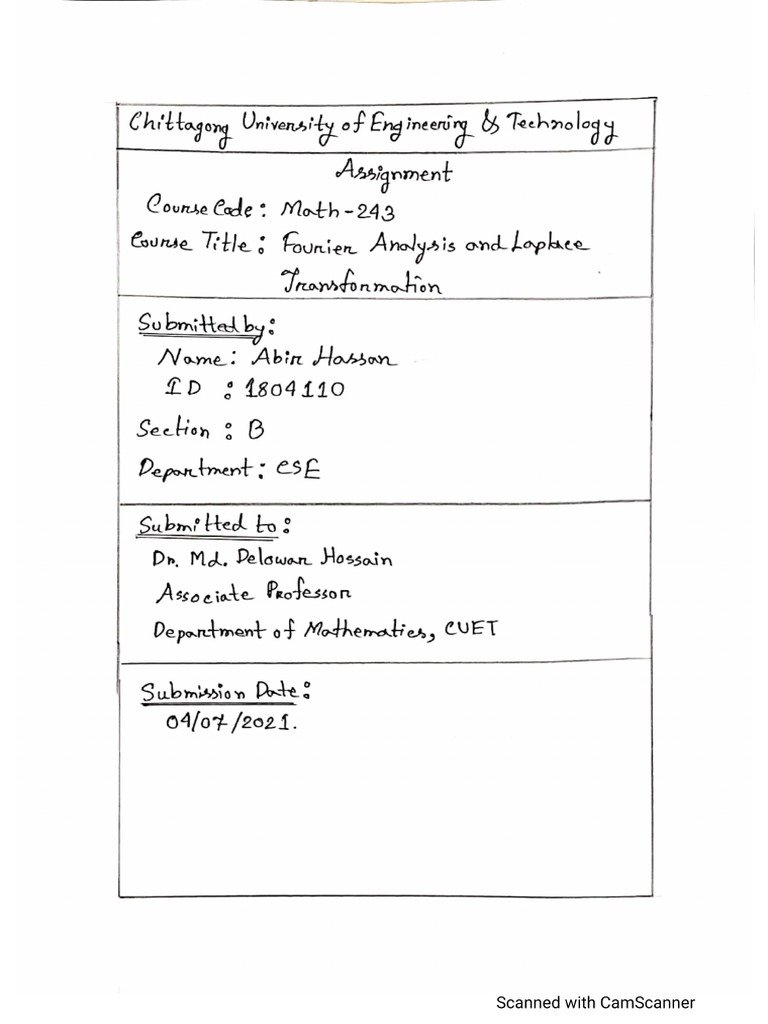 Chittagong University of Engineering & Technology
Assignment
Course Code: Math-243
Course Title: Fourier Analysis and Laplace
Transformation
Submitted by:
Name: Abir Hassan
ID : 1804110
Section : B
Department: CSE
Submitted to:
Dr. Md. Delowar Hossain
Associate Professor
Department of Mathematics, CUET
Submission Date:
04/07/2021.
Scanned with CamScanner